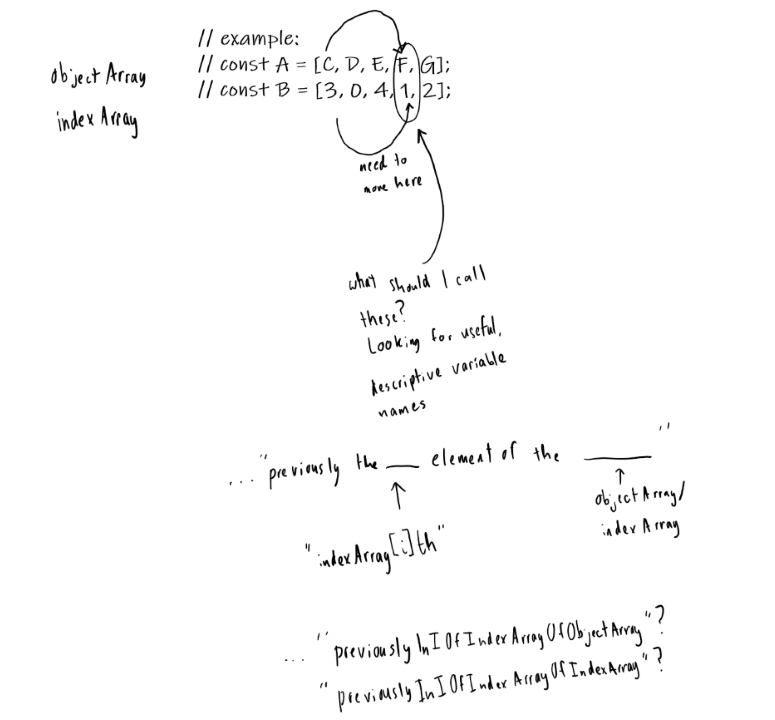 // example:
// const A = [C, D, E, F, G];
// const B = [3, 0, 4, 1, 2];
objectArray
indexArray
need to
move here
what should I call
these?
Looking for useful,
descriptive variable
names
... "previously the ___ element of the ______"
"indexArray[i]th"
objectArray/
indexArray
... "previouslyInIOfIndexArrayOfObjectArray"?
"previouslyInIOfIndexArrayOfIndexArray"?